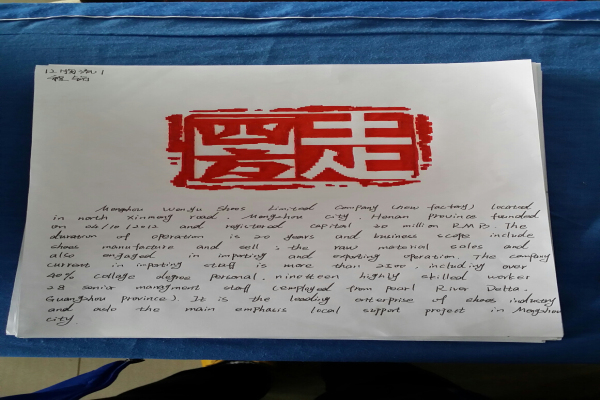 12物流1
程锦
四方 走
Mengzhou wenyu Shoes Limited Company (view factory) located
in north xinmeng road. Mengzhou city. Henan Province funded
on 24/10/2012 and registered capital 20 million RMB. The
duration of operation is 20 years and business scope include
shoes manufacture and sell; the raw material sales and
also engaged in importing and exporting operation. The company
current in importing staff is more than 2500. including over
40% collage degree personal. nineteen highly skilled worker
28 senior managment staff (employed from pearl River Delta.
Guangzhou province). It is the leading enterprise of shoes industry
and aslo the main emphasis local support project in Mengzhou
city